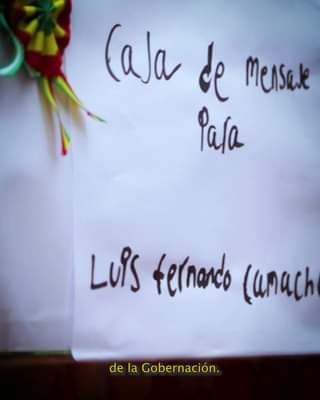 Caja de mensaje
Para
Luis fernando Camach
de la Gobernación.